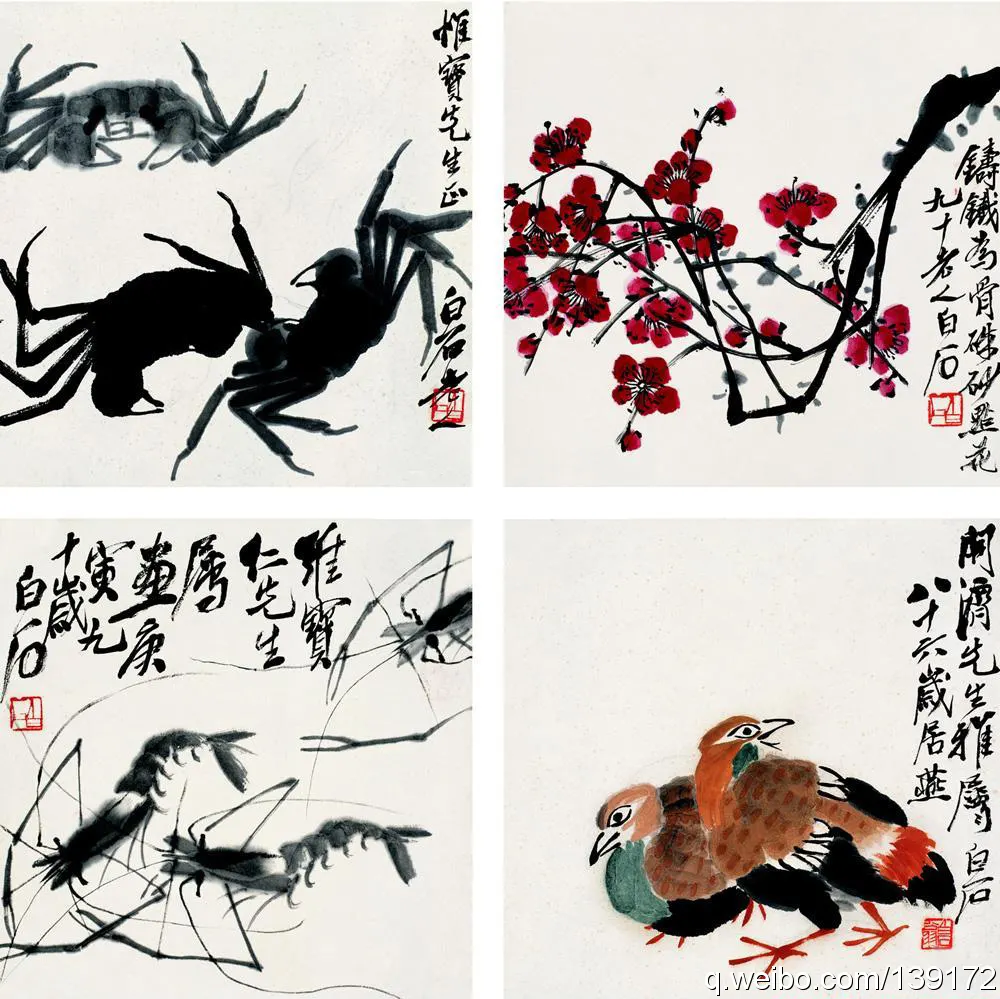 惟寶先生正
白石
鑄鐵為骨硃砂點花
九十老人白石
維寶
仁先生
屬
畫庚
寅九
十歲
白石
開濟先生雅屬
八十六歲居燕
白石
q.weibo.com/139172